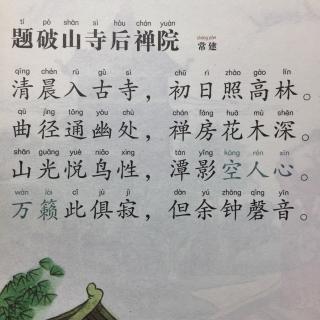 tí pò shān sì hòu chán yuàn
题破山寺后禅院
cháng jiàn
常建
qīng chén rù gǔ sì chū rì zhào gāo lín
清晨入古寺，初日照高林。
qū jìng tōng yōu chù chán fáng huā mù shēn
曲径通幽处，禅房花木深。
shān guāng yuè niǎo xìng tán yǐng kōng rén xīn
山光悦鸟性，潭影空人心。
wàn lài cǐ jù jì dàn yú zhōng qìng yīn
万籁此俱寂，但余钟磬音。